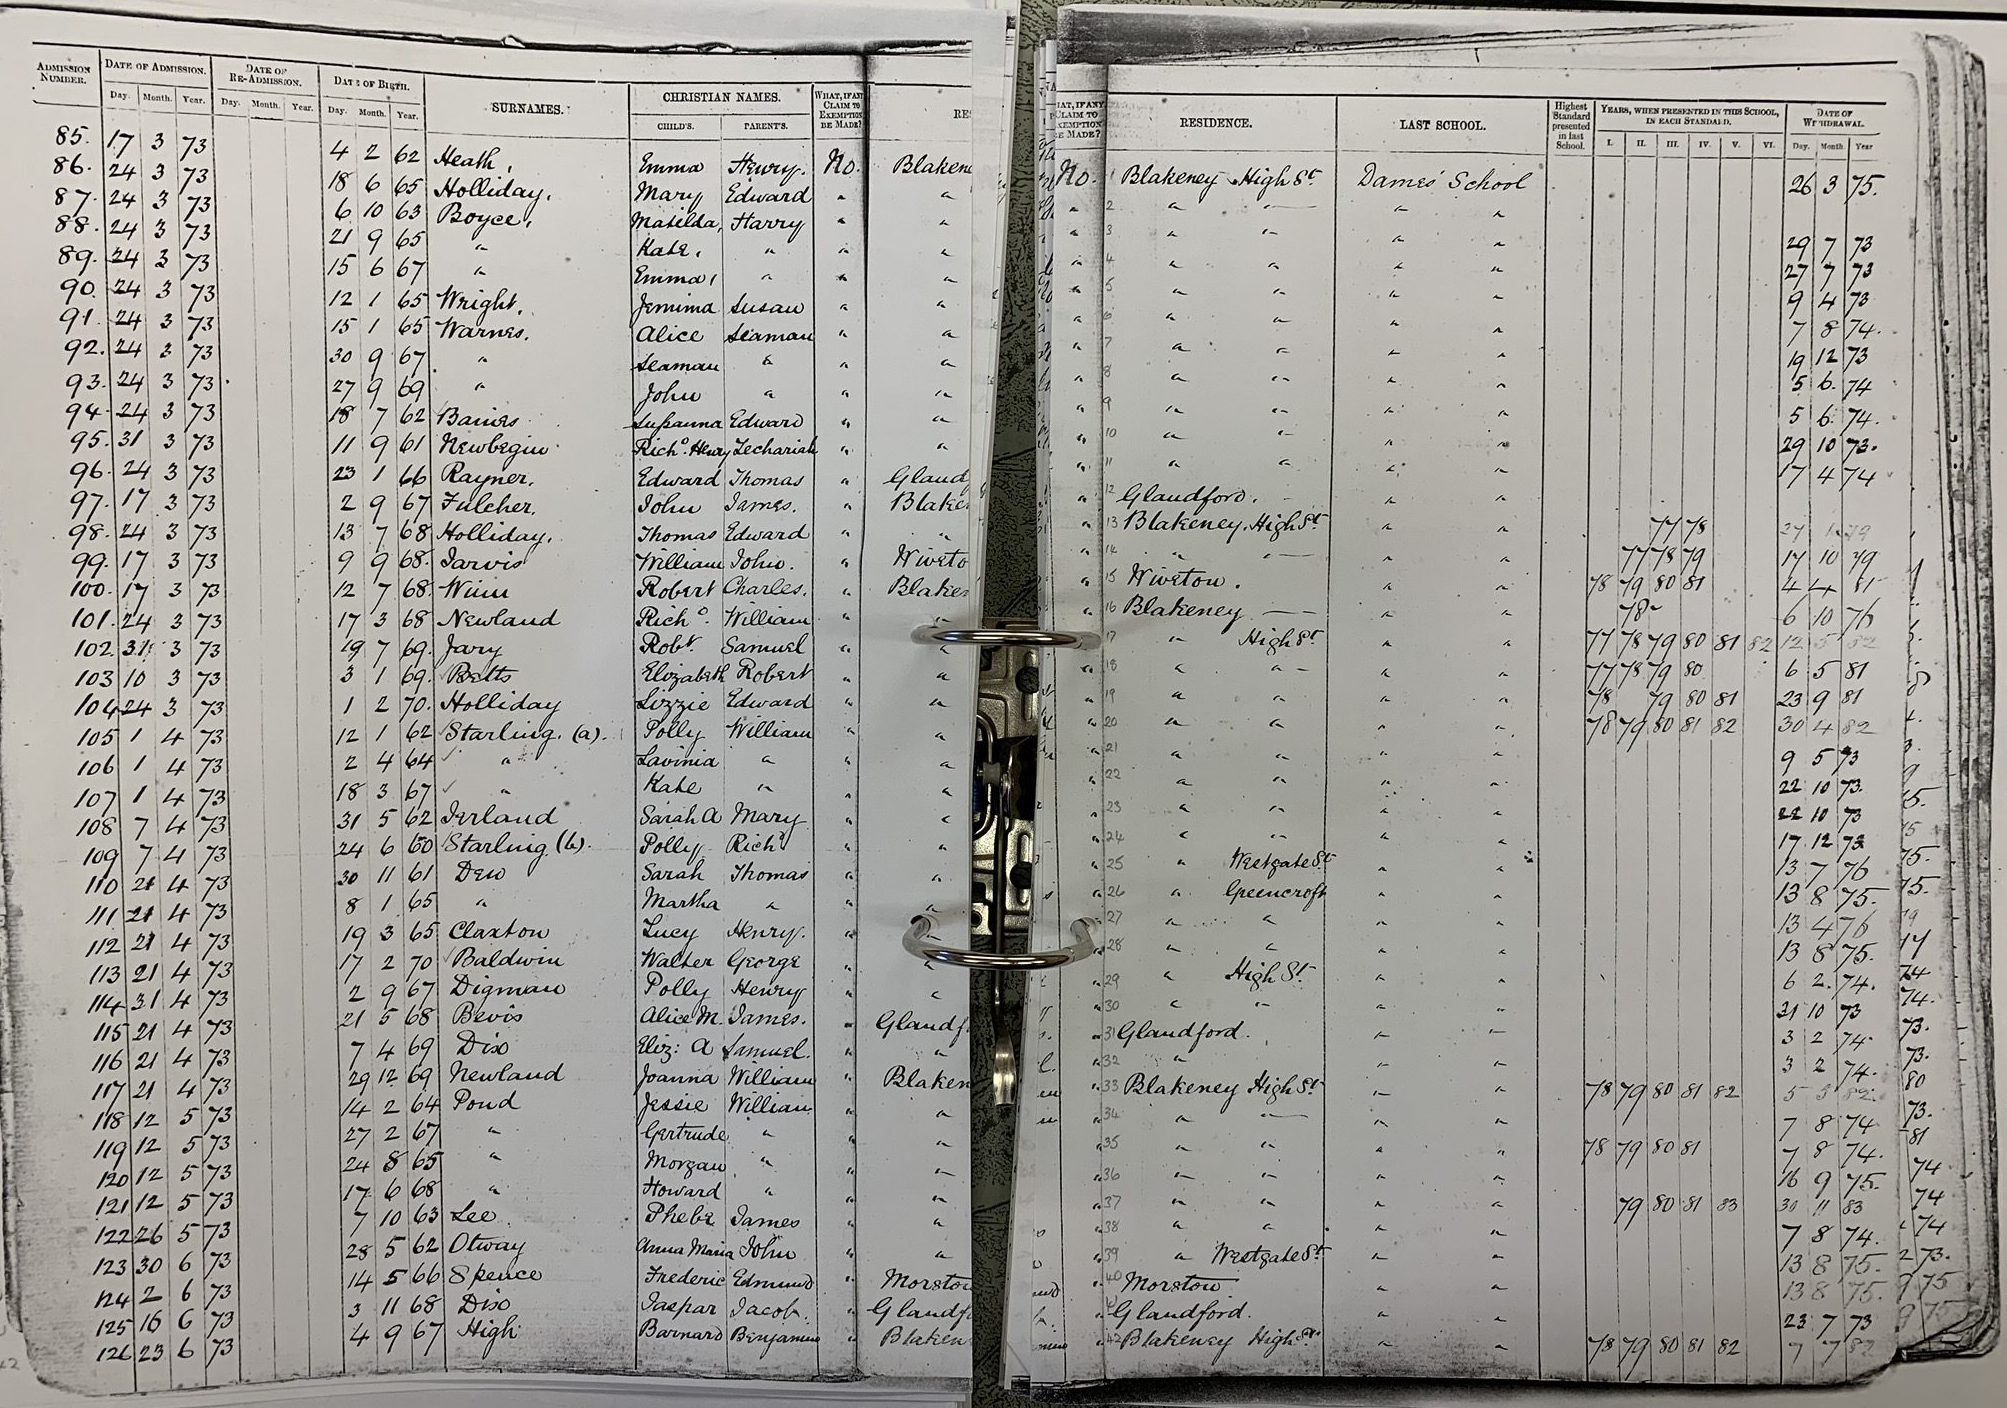 ADMISSION NUMBER. DATE OF ADMISSION. DATE OF RE-ADMISSION. DATE OF BIRTH. SURNAMES. CHRISTIAN NAMES. WHAT, IF ANY CLAIM TO EXEMPTION BE MADE? RE
Day. Month. Year. Day. Month. Year. Day. Month. Year. CHILD'S. PARENT'S.
85. 17 3 73 4 2 62 Heath, Emma Henry. No. Blakene
86. 24 3 73 18 6 65 Holliday, Mary Edward " "
87. 24 3 73 6 10 63 Boyce, Matilda, Harry " "
88. 24 3 73 21 9 65 " Kate, " " "
89. 24 3 73 15 6 67 " Emma, " " "
90. 24 3 73 12 1 65 Wright, Jemima Susan " "
91. 24 3 73 15 1 65 Warnes. Alice Seaman " "
92. 24 3 73 30 9 67 " Seaman " " "
93. 24 3 73 27 9 69 " John " " "
94. 24 3 73 18 7 62 Baines Susanna Edward " "
95. 31 3 73 11 9 61 Newbegin Richd. Henry Zechariah " "
96. 24 3 73 23 1 66 Rayner, Edward Thomas " Glandf
97. 17 3 73 2 9 67 Fulcher, John James. " Blaken
98. 24 3 73 13 7 68 Holliday, Thomas Edward " "
99. 17 3 73 9 9 68. Jarvis William John. " Wiveto
100. 17 3 73 12 7 68. Winn Robert Charles. " Blaken
101. 24 3 73 17 3 68 Newland Richd. William " "
102. 31 3 73 19 7 69. Jary Robt. Samuel " "
103 10 3 73 3 1 69. Betts Elizabeth Robert " "
104 24 3 73 1 2 70. Holliday Lizzie Edward " "
105 1 4 73 12 1 62 Starling. (a). Polly William " "
106 1 4 73 2 4 64 " Lavinia " " "
107 1 4 73 18 3 67 " Kate " " "
108 7 4 73 31 5 62 Ierland Sarah A Mary " "
109 7 4 73 24 6 60 Starling (b). Polly Richd " "
110 21 4 73 30 11 61 Dew Sarah Thomas " "
111 21 4 73 8 1 65 " Martha " " "
112 21 4 73 19 3 65 Claxton Lucy Henry. " "
113 21 4 73 17 2 70 Baldwin Walter George " "
114 31 4 73 2 9 67 Digman Polly Henry " "
115 21 4 73 21 5 68 Bevis Alice M. James. " Glandf
116 21 4 73 7 4 69 Dix Eliz: A Samuel. " "
117 21 4 73 29 12 69 Newland Joanna William " Blaken
118 12 5 73 14 2 64 Pond Jessie William " "
119 12 5 73 27 2 67 " Gertrude " " "
120 12 5 73 24 8 65 " Morgan " " "
121 12 5 73 17 6 68 " Howard " " "
122 26 5 73 7 10 63 Lee Phebe James " "
123 30 6 73 28 5 62 Otway Anna Maria John " "
124 2 6 73 14 5 66 Spence Frederic Edmund " Morston
125 16 6 73 3 11 68 Dix Jaspar Jacob. " Glandf
126 23 6 73 4 9 67 High Barnard Benjamin " Blaken
WHAT, IF ANY CLAIM TO EXEMPTION BE MADE? RESIDENCE. LAST SCHOOL. Highest Standard presented in last School. YEARS, WHEN PRESENTED IN THIS SCHOOL, IN EACH STANDARD. DATE OF WITHDRAWAL.
I. II. III. IV. V. VI. Day. Month Year
No. 1 Blakeney High St. Dames' School 26 3 75.
" 2 " — " "
" 3 " " " " 29 7 73
" 4 " " " " 27 7 73
" 5 " " " " 9 4 73
" 6 " " " " 7 8 74.
" 7 " " " " 19 12 73
" 8 " " " " 5 6. 74
" 9 " " " " 5 6. 74.
" 10 " " " " 29 10 73.
" 11 " " " " 17 4 74
" 12 Glandford. " "
" 13 Blakeney. High St. " " 77 78 27 79
" 14 " — " " 77 78 79 17 10 79
" 15 Wiveton. " " 78 79 80 81 4 4 81
" 16 Blakeney — " " 78 6 10 76
" 17 " High St. " " 77 78 79 80 81 82 12 5 82
" 18 " " " " 77 78 79 80 6 5 81
" 19 " " " " 78 79 80 81 23 9 81
" 20 " " " " 78 79 80 81 82 30 4 82
" 21 " " " " 9 5 73
" 22 " " " " 22 10 73.
" 23 " " " " 22 10 73
" 24 " " " " 17 12 73
" 25 " Westgate St. " " 13 7 76
" 26 " Greencroft " " 13 8 75.
" 27 " " " " 13 4 76
" 28 " " " " 13 8 75.
" 29 " High St. " " 6 2. 74.
" 30 " " " " 21 10 73
" 31 Glandford. " " 3 2 74.
" 32 " " " 3 2 74.
" 33 Blakeney High St. " " 78 79 80 81 82 5 3 82
" 34 " — " " 7 8 74
" 35 " " " " 78 79 80 81 7 8 74.
" 36 " " " " 16 9 75.
" 37 " " " " 79 80 81 83 30 11 83
" 38 " " " " 7 8 74.
" 39 " Westgate St. " " 13 8 75.
" 40 Morston " " 13 8 75.
" 41 Glandford. " " 23 7 73
" 42 Blakeney High St. " " 78 79 80 81 82 7 7 82